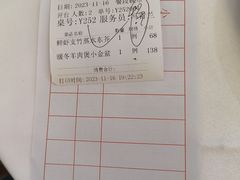 日期:2023-11-16
开台人数:2 单号:Y252
桌号:Y252 服务员:
菜品名称 数量
鲜虾支竹蒸水东芥 1 例 68
暖冬羊肉煲小金盆 1 例 138
消费合计:
打印时间:2023-11-16 19:22:23